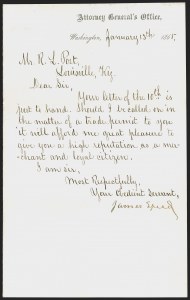 Attorney General's Office,
Washington, January 13th 1865.
Mr. R. L. Post,
Louisville, Ky.
Dear Sir,
Your letter of the 10th is
just to hand. Should I be called on in
the matter of a trade permit to you
it will afford me great pleasure to
give you a high reputation as a mer-
chant and loyal citizen.
I am sir,
Most Respectfully,
Your obedient Servant,
James Speed